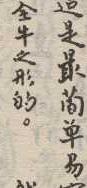 是最简单易
全牛之形的。